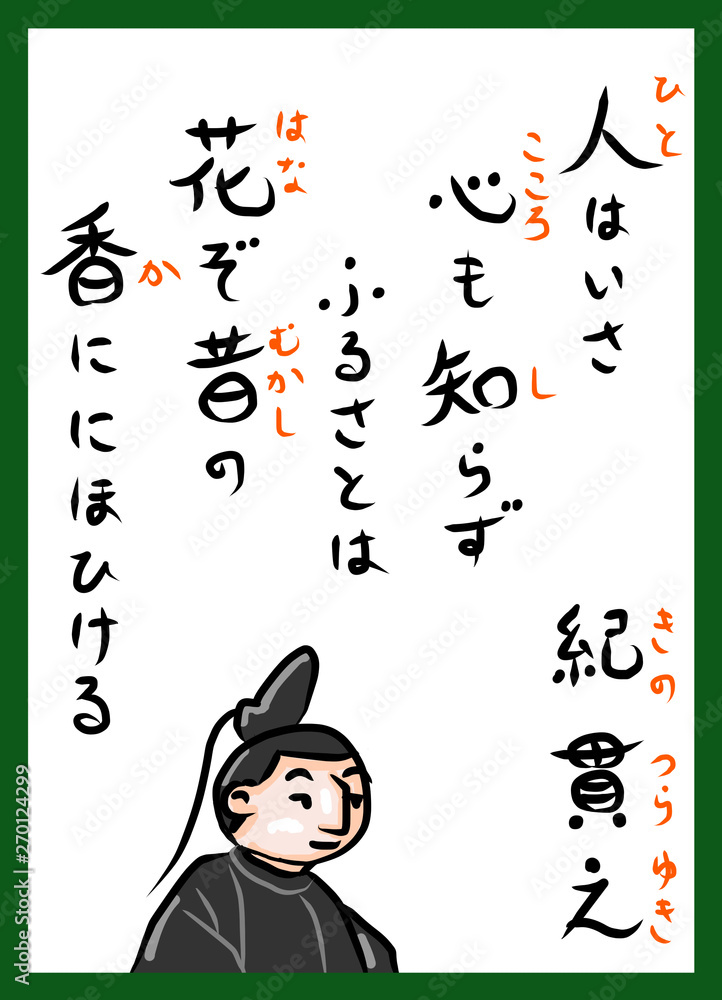 人はいさ
ひと
心も知らず
こころ し
ふるさとは
花ぞ昔の
はな むかし
香ににほひける
か
紀貫之
きの つらゆき
Adobe Stock | #270124299
Adobe Stock